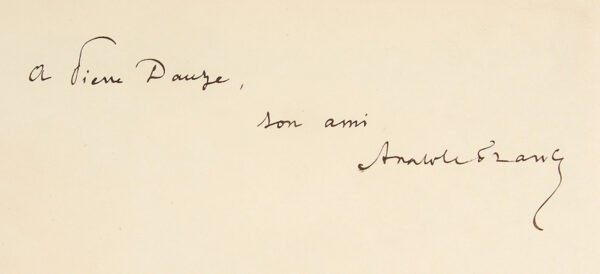 A Pierre Dauze,
son ami
Anatole France